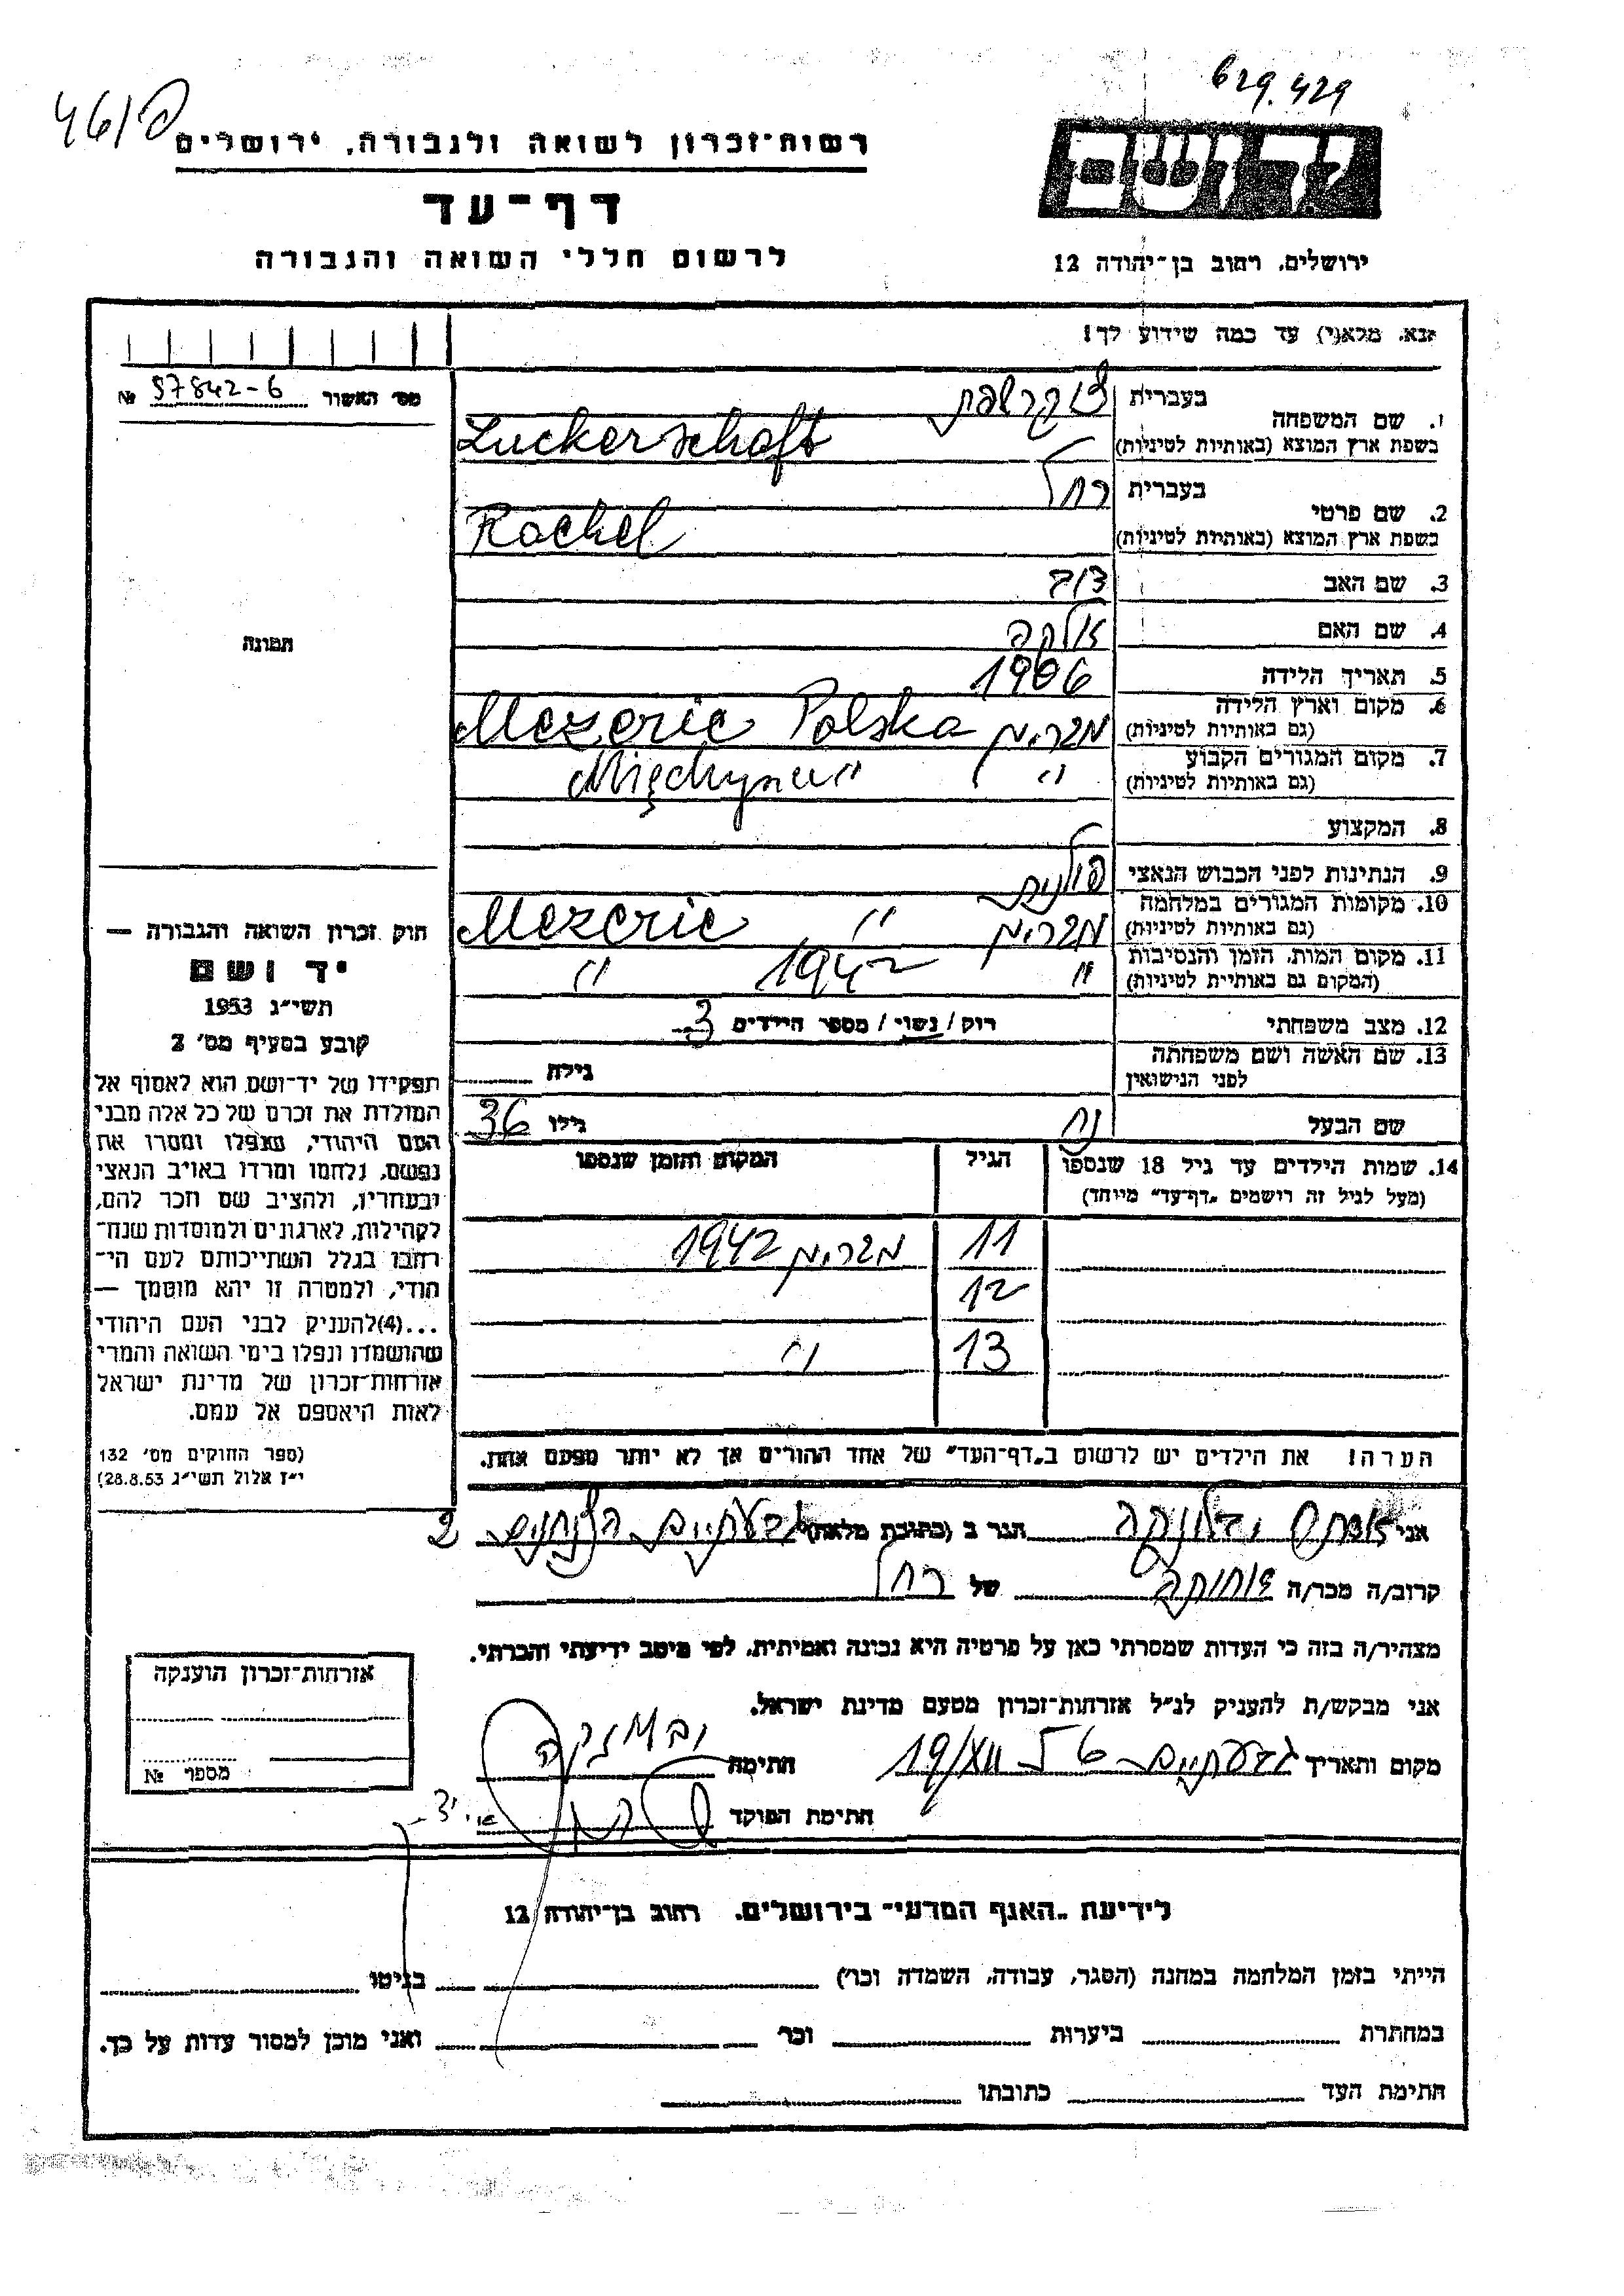 629.429
46/פ
רשות־זכרון לשואה ולגבורה, ירושלים
דף־עד
לרשום חללי השואה והגבורה
יד ושם
ירושלים, רחוב בן־יהודה 12
נא, מלא(י) עד כמה שידוע לך!
מס׳ האשור № 97842-6
1. שם המשפחה בעברית צוקרשפט
בשפת ארץ המוצא (באותיות לטיניות) Zuckerschaft
2. שם פרטי בעברית רחל
בשפת ארץ המוצא (באותיות לטיניות) Rachel
3. שם האב דוב
4. שם האם אלקה
5. תאריך הלידה 1906
6. מקום וארץ הלידה (גם באותיות לטיניות) מזריץ Mezeric Polska
7. מקום המגורים הקבוע (גם באותיות לטיניות) " "
8. המקצוע
9. הנתינות לפני הכבוש הנאצי פולנית
10. מקומות המגורים במלחמה (גם באותיות לטיניות) מזריץ " Mezeric
11. מקום המות, הזמן והנסיבות (המקום גם באותיות לטיניות) " 1942 "
12. מצב משפחתי רוק / נשוי / מספר הילדים 3
13. שם האשה ושם משפחתה לפני הנישואין גילה
שם הבעל נח גילו 36
14. שמות הילדים עד גיל 18 שנספו הגיל המקום והזמן שנספו
(מעל לגיל זה רושמים "דף־עד" מיוחד)
11 מזריץ 1942
12
13 "
הערה! את הילדים יש לרשום ב"דף־העד" של אחד ההורים אך לא יותר מפעם אחת.
תמונה
חוק זכרון השואה והגבורה —
יד ושם
תשי״ג 1953
קובע בסעיף מס׳ 2
תפקידו של יד־ושם הוא לאסוף אל
המולדת את זכרם של כל אלה מבני
העם היהודי, שנפלו ומסרו את
נפשם, נלחמו ומרדו באויב הנאצי
ובעוזריו, ולהציב שם וזכר להם,
לקהילות, לארגונים ולמוסדות שנח־
רבו בגלל השתייכותם לעם הי־
הודי, ולמטרה זו יהא מוסמך —
...(4) להעניק לבני העם היהודי
שהושמדו ונפלו בימי השואה והמרי
אזרחות־זכרון של מדינת ישראל
לאות היאספם אל עמם.
(ספר החוקים מס׳ 132
י״ז אלול תשי״ג 28.8.53)
אני הגר ב (כתובת מלאה) גבעתיים 2
קרוב/ה מכר/ה אחותה של רחל
מצהיר/ה בזה כי העדות שמסרתי כאן על פרטיה היא נכונה ואמיתית, לפי מיטב ידיעתי והכרתי.
אני מבקש/ת להעניק לנ״ל אזרחות־זכרון מטעם מדינת ישראל.
מקום ותאריך גבעתיים 19/XII 56 חתימה
חתימת הפוקד
אזרחות־זכרון הוענקה
מספר №
לידיעת "האגף המדעי" בירושלים, רחוב בן־יהודה 12
הייתי בזמן המלחמה במחנה (הסגר, עבודה, השמדה וכר׳) בגיטו
במחתרת ביערות וכר׳ ואני מוכן למסור עדות על כך.
חתימת העד כתובתו